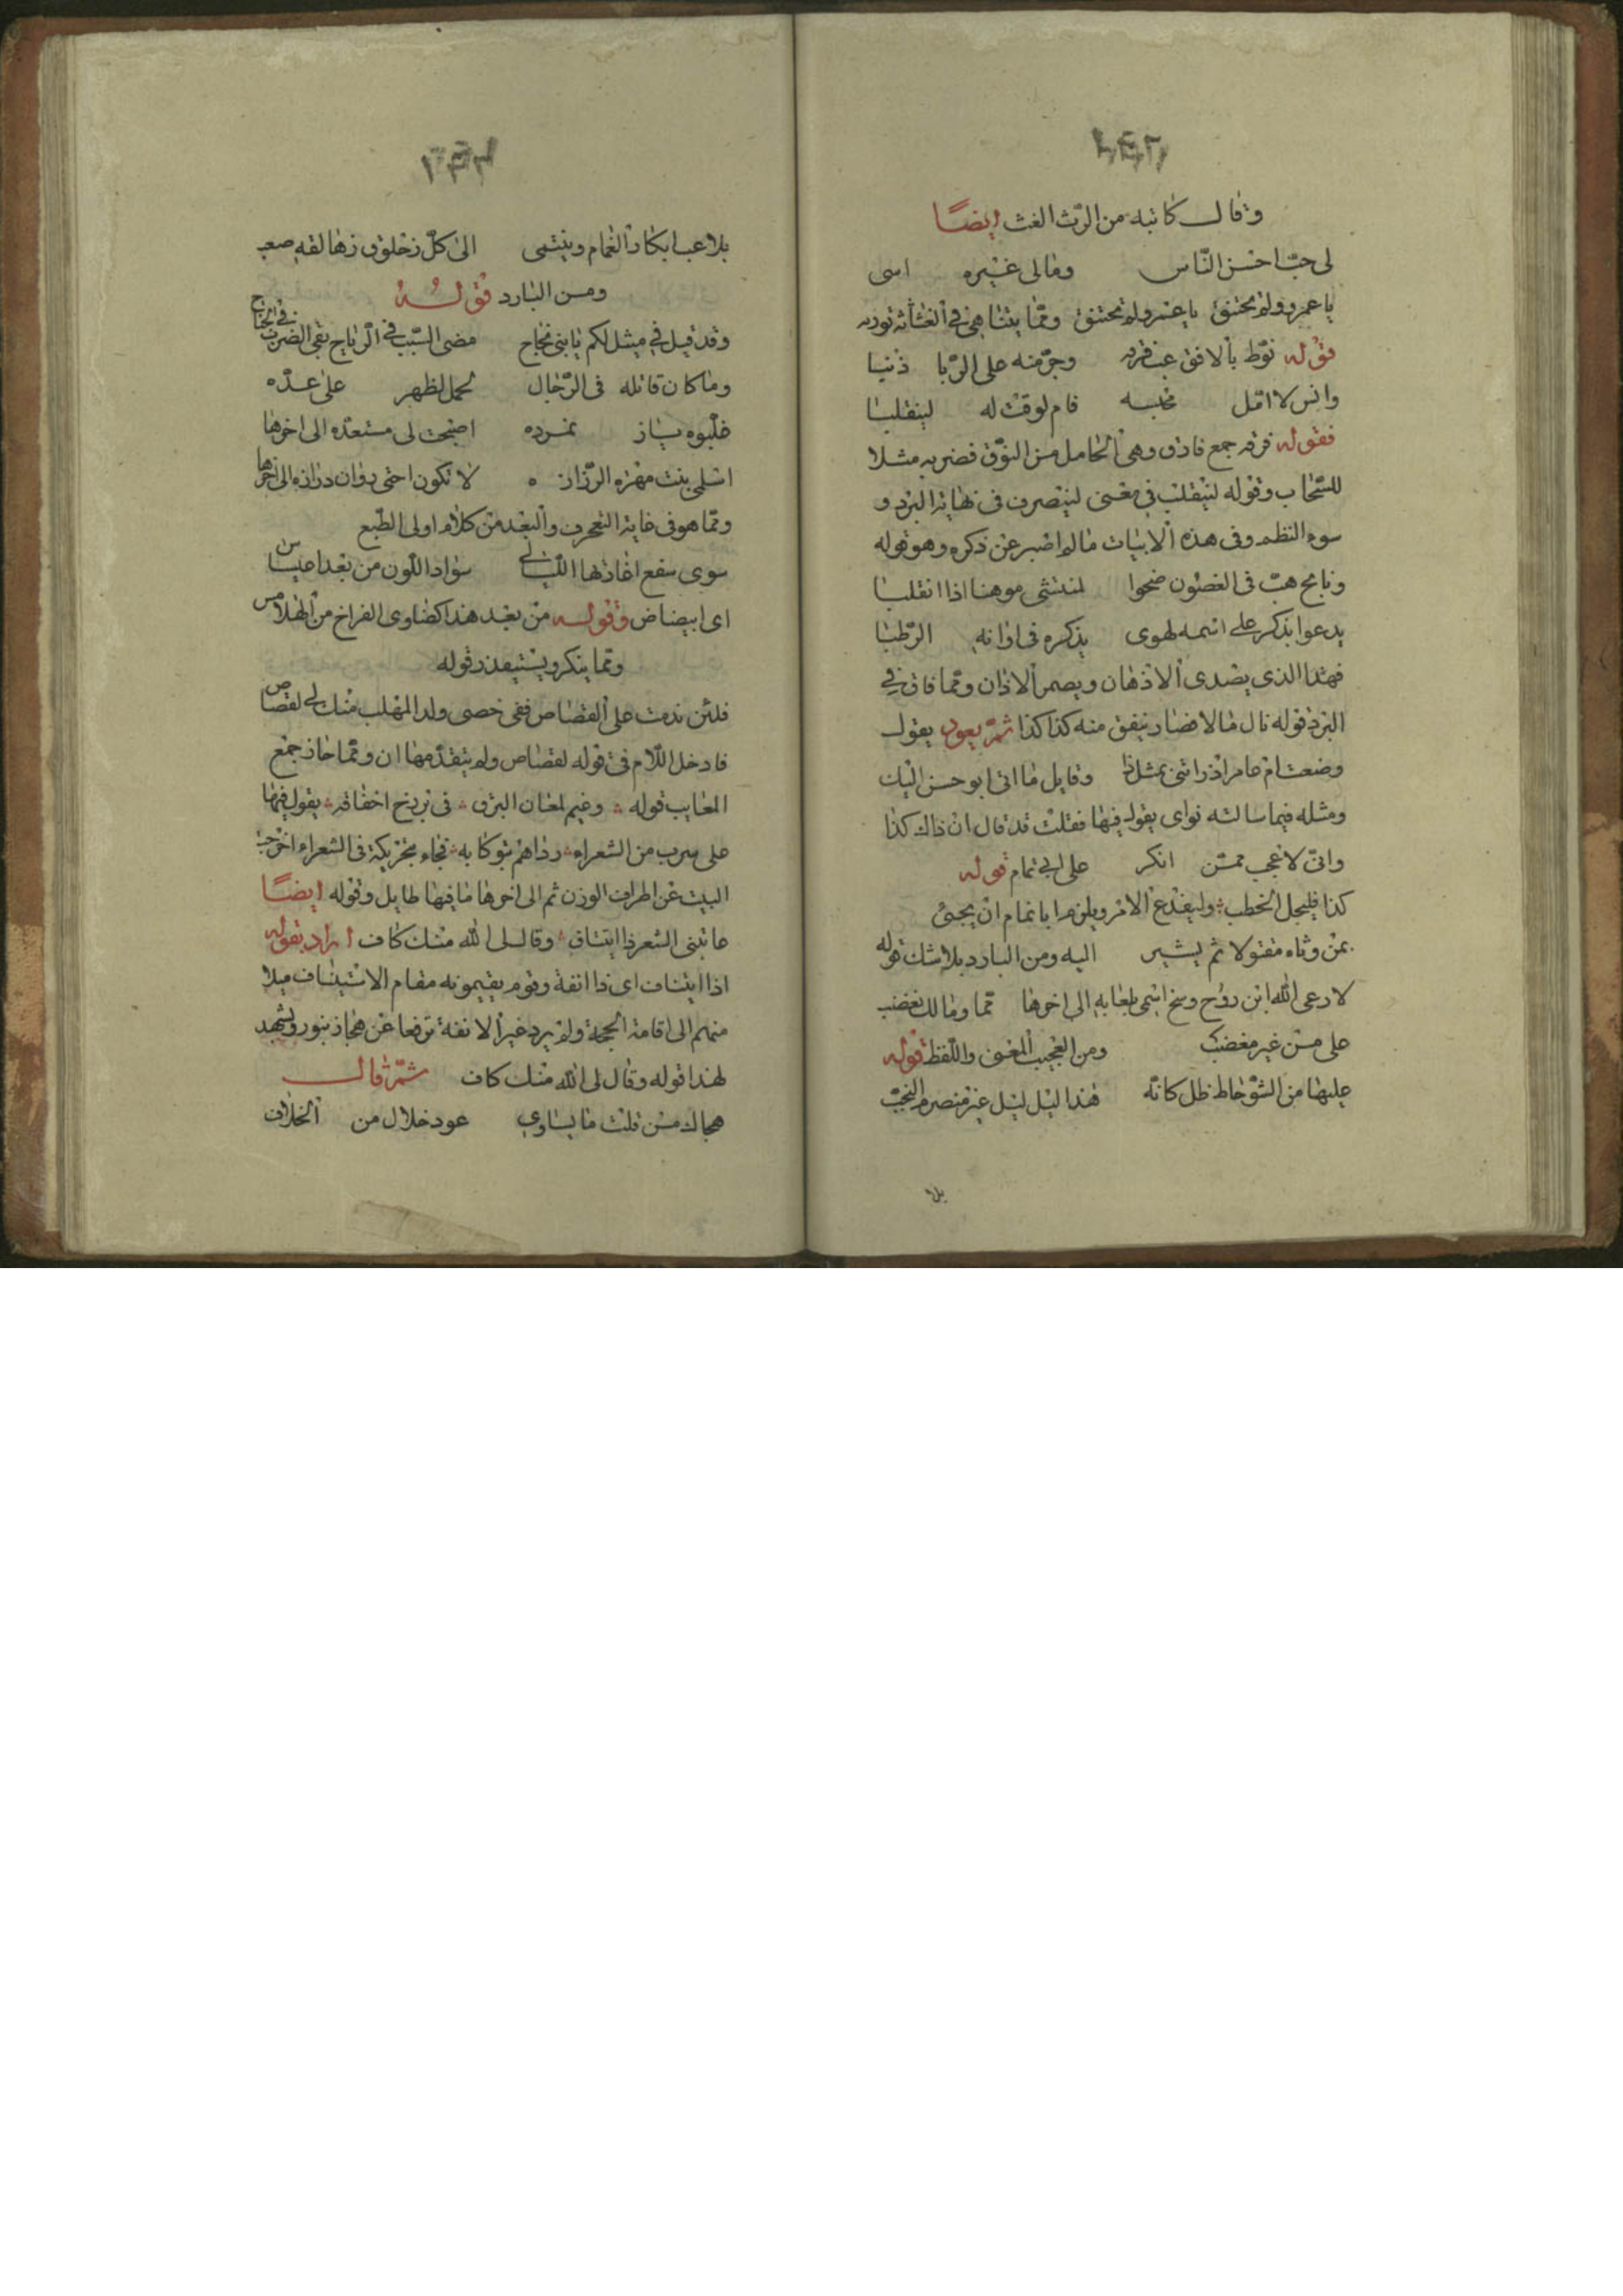 وقال كاتبه من الرث الغث ايضًا
لى حبّ احسن النّاس ومالى غيره اسى
يا عمرو ولم تحتنق يا عمرو لم تحتنق وممّا يتناهى في الغثاثة
قوله نوّط بالافق عب فرّه وجرّ منه على الرّبا ذنبا
وانس لا امّل قام لوقت له لينقلبا
فقوله فرّه جمع فارق وهى الحامل من النوّق فضربه مثلا
للسّحاب وقوله لينقلب في معنى لينصرف فى نهاية البرد و
سوء النظم وفى هذه الابيات ما لم اصبر عن ذكره وهو قوله
ونابح هبّ فى الغصون ضحوا لمنتشى موهنا اذا انقلبا
يدعوا بذكر على اسمه لهوى يذكره فى اوانه الرّطبا
فهذا الذى يصدى الاذهان ويصم الاذان وممّا فاق في
البرد قوله نال مالا فصار ينفق منه كذا كذا ثمّ يعود يقول
وضعت ام عامر اذ راتنى بمثل ذا وقايل ما اتى ابو حسن اليك
ومثله فيما سالته نواى يقول فيها فقلت قد قال ان ذاك كذا
وانّى لاعجب ممّن انكر على ابي تمام قوله
كذا فليجل الخطب وليفدح الامر ويلزم ابا تمام ان يجئ
بمن وثاه مقتولا ثم يشير اليه ومن البارد بلا شك قوله
لا رعى الله ابن روح وسخ اسمى بلعابه الى اخرها ممّا ومالك تغضب
على من غير مغضب ومن العجيب المعنى واللّفظ قوله
عليها من الشوحاط ظل كانّه هذا ليل ليل غير منصرم النحب
بلا
بلاعب ابكار الغمام وينتمى الى كلّ زحلوق زهالقه صعب
ومن البارد قوله
وقد قيل في مثلكم يا بنى نجاح مضى السّبب في الرياح بقى الضرب في الجناح
وما كان قائله فى الرّجال لحمل لظهر على عدّه
خلّبوه بباز نمرده اصبحت لى مستعدّه الى اخرها
اسلمى بنت مهره الرّزان لا تكون اختى بوان درازه الى اخرها
وممّا هو فى غاية التعجرف والبعد من كلام اولى الطّبع
سوى سفع اغاذها اللّيالي سواد اللّون من بعد اعيساس
اى ابيضاض وقوله من بعد هذا كضاوى الفراخ من الهلامس
وممّا ينكر ويستقذر قوله
فلئن ندمت على القصاص ففى خصى ولد المهلب منك لي لقصاص
فادخل اللّام فى قوله لقصاص ولم يتقدّمها ان وممّا حاز جمع
المعايب قوله وغيم لمعان البرق فى نرنج اخفافه يقول فيها
على سرب من الشعراء رذاهم بوكابه فجاء بتحريكة فى الشعراء اخرجت
البيت عن اطراف الوزن ثم الى اخرها ما فيها طايل وقوله ايضًا
عاتبنى الشعر ذا ايتناف وقال لى الله منك كاف اراد بقوله
اذا ايتناف اى ذا انفة وقوم يقيمونه مقام الاستيناف ميلا
منهم الى اقامة الحجة ولم يرد غير الانفة ترفعا عن هجاذ بنور ويشهد
لهذا قوله وقال لى الله منك كاف ثمّ قال
هجاك من قلت ما يساوي عود خلال من الخلاف